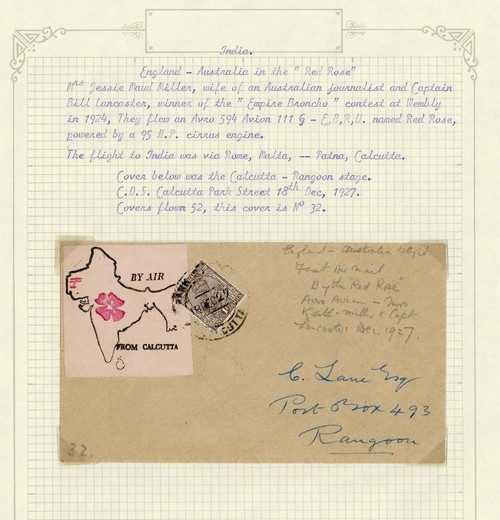 India.
England - Australia in the "Red Rose"
Mrs Jessie Maud Miller, wife of an Australian journalist and Captain
Bill Lancaster, winner of the "Empire Broncho" contest at Wembly
in 1924, They flew an Avro 594 Avion 111 G - E,B,R,U. named Red Rose,
powered by a 95 H.P. cirrus engine.
The flight to India was via Rome, Malta, -- Patna, Calcutta.
Cover below was the Calcutta - Rangoon stage.
C.D.S. Calcutta Park Street 18th Dec, 1927.
Covers flown 52, this cover is No 32.
England - Australia
First Air mail
By the Red Rose"
Avro Avian - Mrs
Keith-Miller & Capt
Lancaster Dec 1927.
BY AIR
FROM CALCUTTA
PARK
CUTTA
C. Lane Esq
Post Box 493
Rangoon
32.